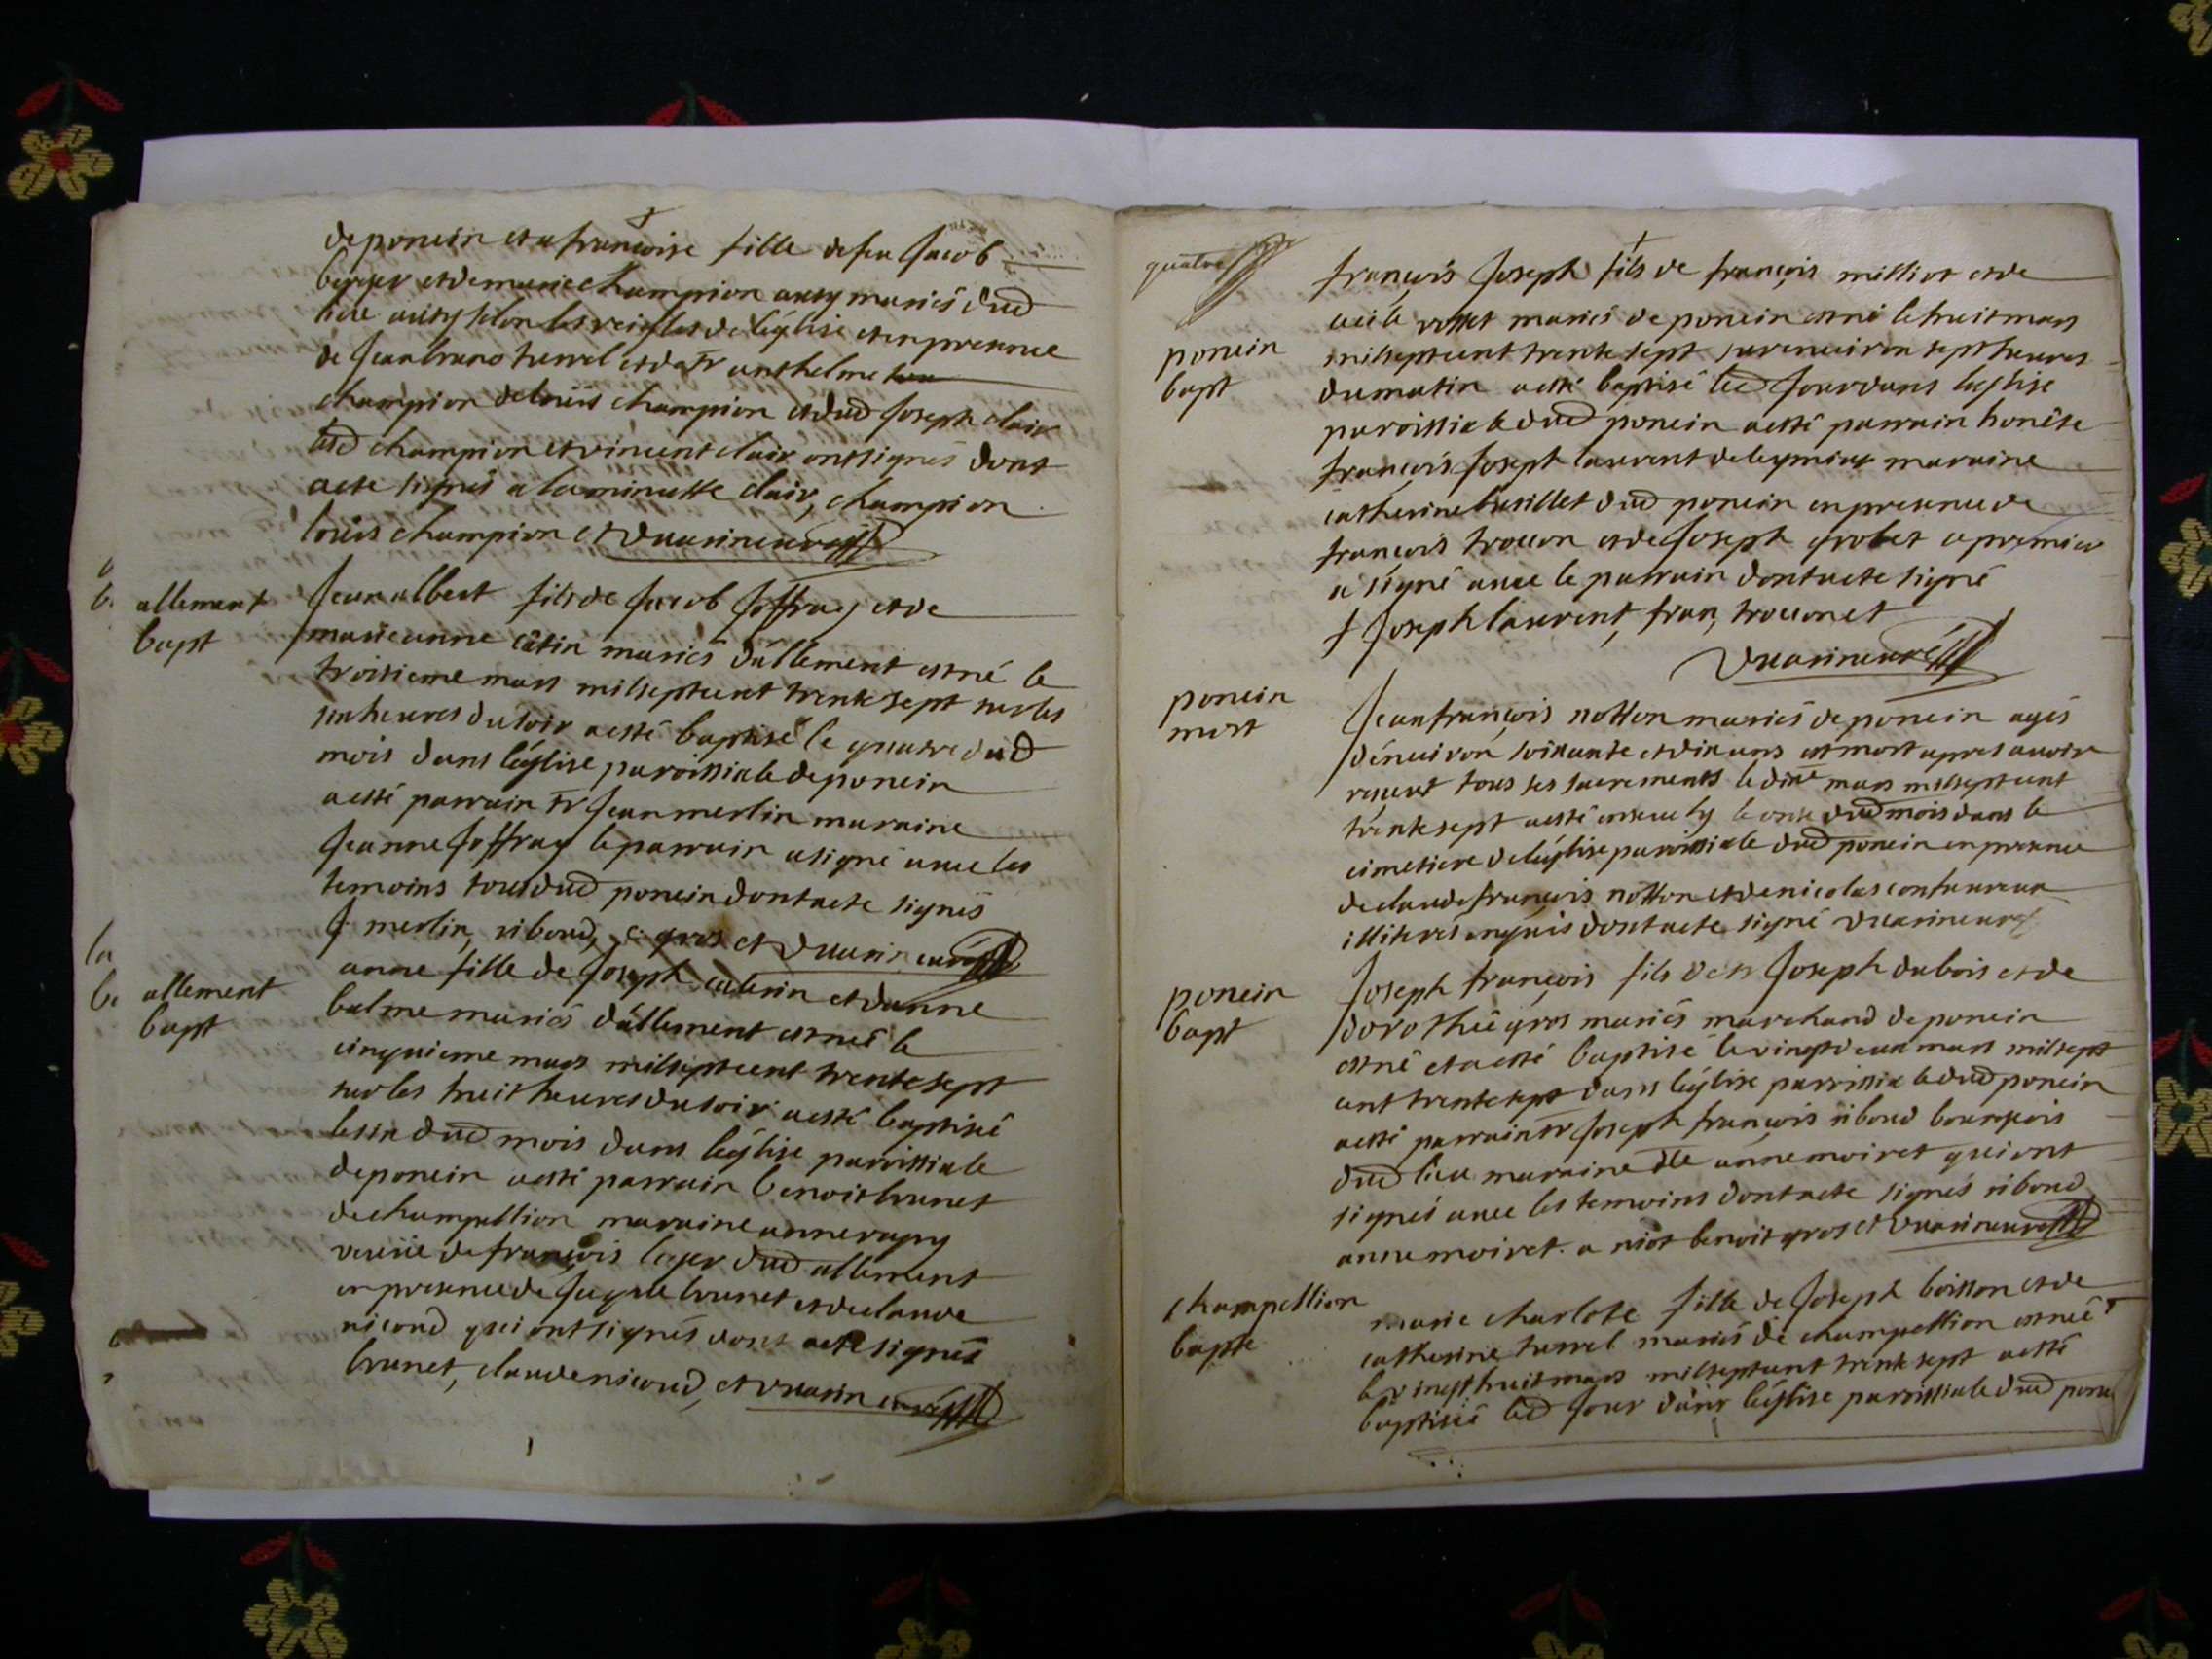 deponcin et a françoise fille de feu Jacob
berger et de marie champion ausy mariés dud
lieu ausy selon les reigles de léglise et en presence
de Jean bruno turrel et de sr anthelme
champion de loüis champion et dud Joseph clair
led champion et vincent clair ont signés dont
acte signés a la minutte clair, champion
loüis champion et Duarin curé
allement
bapt
Jean albert fils de Jacob Joffray et de
marie anne cätin mariés dallement est né le
troisieme mars mil sept cent trente sept sur les
six heures du soir a esté baptisé le quatre dud
mois dans léglise paroissiale de poncin
a esté parrain sr Jean merlin maraine
Jeanne Joffray le parrain a signé avec les
temoins tous dud poncin dont acte signés
J merlin, riboud, c: gros et Duarin curé
allement
bapt
anne fille de Joseph caterin et danne
balme mariés dallement est née le
cinquieme mars mil sept cent trente sept
sur les huit heures du soir a esté baptisée
le six dud mois dans léglise paroissiale
de poncin a esté parrain benoit brunet
de champellion maraine anne
veuve de françois leger dud allement
en presence de brunet et de claude
nicoud qui ont signés dont acte signés
brunet, claude nicoud, et Duarin curé
quatre
poncin
bapt
françois Joseph fils de françois milliot et de
mariés de poncin est né le huit mars
mil sept cent trente sept sur environ sept heures
du matin a esté baptisé led Jour dans léglise
paroissiale dud poncin a esté parrain honéste
françois Joseph laurent de maraine
catherine dud poncin en presence de
françois trocon et de Joseph grobet ce premier
a signé avec le parrain dont acte signé
f Joseph laurent, fran, trocon et
Duarin curé
poncin
mort
Jean françois notton mariés de poncin agés
dénviron soixante et dix ans est mort apres avoir
receut tous ses sacrements le dixe mars mil sept cent
trente sept a esté ensevely le onze dud mois dans le
cimetiere de léglise paroissiale dud poncin en presence
de claude françois notton et de nicolas
illiterés enquis dont acte signé Duarin curé
poncin
bapt
Joseph françois fils de sr Joseph dubois et de
dorothée gros mariés marchand de poncin
est né et a esté baptisé le vingt deux mars mil sept
cent trente sept dans léglise paroissiale dud poncin
a esté parrain sr Joseph françois riboud bourgeois
dud lieu maraine dlle anne moiret qui ont
signés avec les temoins dont acte signés riboud
anne moiret. a niot benoit gros et Duarin curé
champellion
bapte
marie charlote fille de Joseph boisson et de
catherine turrel mariés de champellion est née
le vingt huit mars mil sept cent trente sept a esté
baptisée led Jour dans léglise paroissiale dud ponc